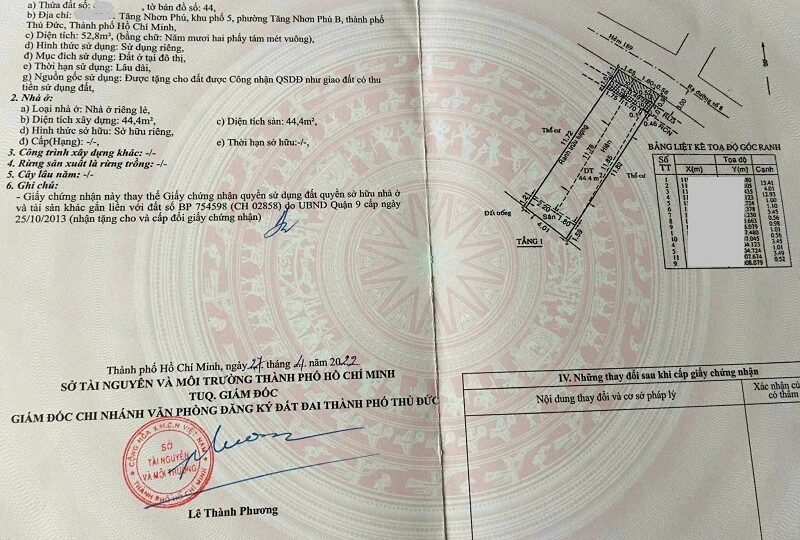 a) Thửa đất số: , tờ bản đồ số: 44,
b) Địa chỉ: , Tăng Nhơn Phú, khu phố 5, phường Tăng Nhơn Phú B, thành phố
Thủ Đức, Thành phố Hồ Chí Minh,
c) Diện tích: 52,8m², (bằng chữ: Năm mươi hai phẩy tám mét vuông),
d) Hình thức sử dụng: Sử dụng riêng,
đ) Mục đích sử dụng: Đất ở tại đô thị,
e) Thời hạn sử dụng: Lâu dài,
g) Nguồn gốc sử dụng: Được tặng cho đất được Công nhận QSDĐ như giao đất có thu
tiền sử dụng đất,
2. Nhà ở:
a) Loại nhà ở: Nhà ở riêng lẻ,
b) Diện tích xây dựng: 44,4m², c) Diện tích sàn: 44,4m²,
d) Hình thức sở hữu: Sở hữu riêng,
đ) Cấp(Hạng): -/-, e) Thời hạn sở hữu:-/-,
3. Công trình xây dựng khác: -/-,
4. Rừng sản xuất là rừng trồng: -/-,
5. Cây lâu năm: -/-,
6. Ghi chú:
- Giấy chứng nhận này thay thế Giấy chứng nhận quyền sử dụng đất quyền sở hữu nhà ở
và tài sản khác gắn liền với đất số BP 754598 (CH 02858) do UBND Quận 9 cấp ngày
25/10/2013 (nhận tặng cho và cấp đổi giấy chứng nhận)
Thành phố Hồ Chí Minh, ngày 27 tháng 4 năm 2022
SỞ TÀI NGUYÊN VÀ MÔI TRƯỜNG THÀNH PHỐ HỒ CHÍ MINH
TUQ. GIÁM ĐỐC
GIÁM ĐỐC CHI NHÁNH VĂN PHÒNG ĐĂNG KÝ ĐẤT ĐAI THÀNH PHỐ THỦ ĐỨC
CỘNG HÒA X.H.C.N VIỆT NAM
SỞ
TÀI NGUYÊN
VÀ MÔI TRƯỜNG
THÀNH PHỐ HỒ CHÍ MINH
Lê Thành Phương
Hẻm 199
Thổ cư
11.72
Ranh trừu tượng
11.78
Hiên
ĐT
44.4 m²
11.85
11.62
0.46
Thổ cư
Đất trống
Sân
4.01
1.59
TẦNG 1
BẢNG LIỆT KÊ TOẠ ĐỘ GÓC RANH
Số
TT
Tọa độ
X(m)
Y(m)
Cạnh
13.41
4.01
12.93
1.00
1.10
3.45
0.56
0.98
1.01
0.56
3.45
1.01
3.49
0.52
IV. Những thay đổi sau khi cấp giấy chứng nhận
Nội dung thay đổi và cơ sở pháp lý
Xác nhận củ
có thẩm